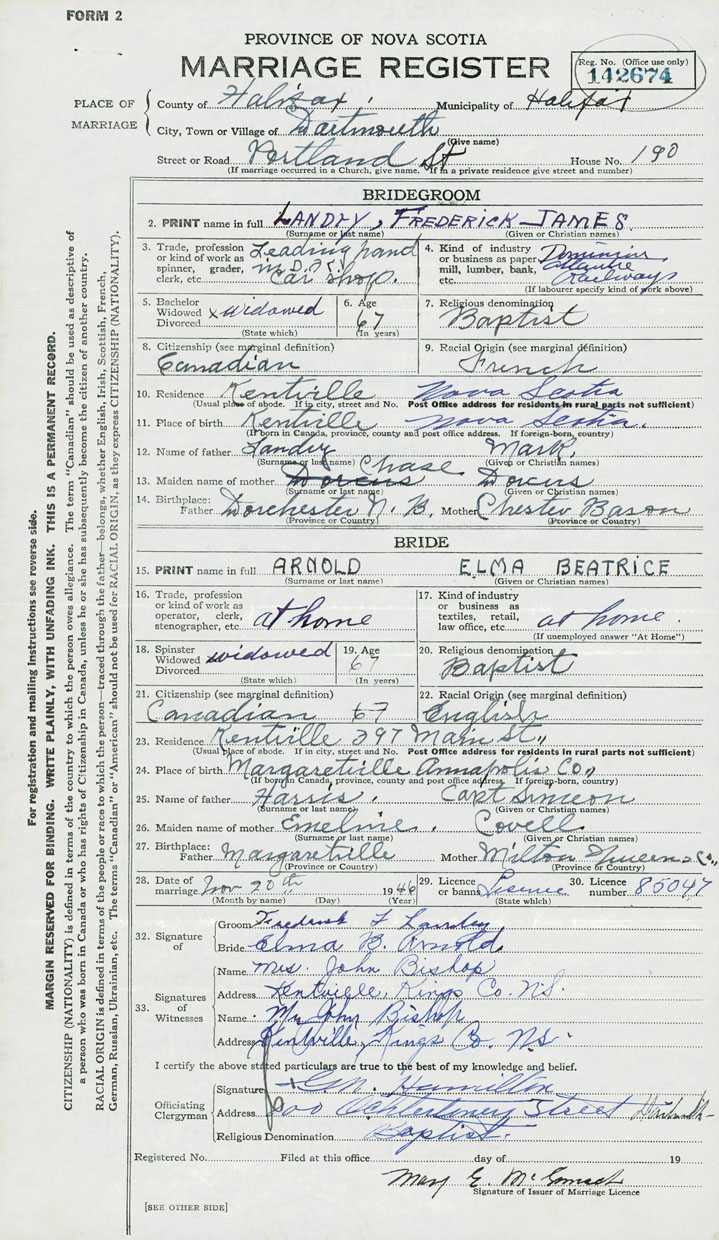 FORM 2
PROVINCE OF NOVA SCOTIA
MARRIAGE REGISTER
Reg. No. (Office use only)
142674
PLACE OF MARRIAGE
County of Halifax, Municipality of Halifax
City, Town or Village of Dartmouth
(Give name)
Street or Road Portland St House No. 190
(If marriage occurred in a Church, give name. If in a private residence give street and number)
BRIDEGROOM
2. PRINT name in full LANDRY, FREDERICK JAMES
(Surname or last name) (Given or Christian names)
3. Trade, profession or kind of work as spinner, grader, clerk, etc. Leading hand in D.A.R. Car shop.
4. Kind of industry or business as paper mill, lumber, bank, etc. Dominion Atlantic Railways
(If labourer specify kind of work above)
5. Bachelor Widowed Divorced x widowed
(State which)
6. Age 67
(In years)
7. Religious denomination Baptist
8. Citizenship (see marginal definition) Canadian
9. Racial Origin (see marginal definition) French
10. Residence Kentville Nova Scotia
(Usual place of abode. If in city, street and No. Post Office address for residents in rural parts not sufficient)
11. Place of birth Kentville Nova Scotia.
(If born in Canada, province, county and post office address. If foreign-born, country)
12. Name of father Landry Mark,
(Surname or last name) (Given or Christian names)
13. Maiden name of mother Dorcus Chase Dorcus
(Surname or last name) (Given or Christian names)
14. Birthplace: Father Dorchester N.B. Mother Chester Bason
(Province or Country) (Province or Country)
BRIDE
15. PRINT name in full ARNOLD ELMA BEATRICE
(Surname or last name) (Given or Christian names)
16. Trade, profession or kind of work as operator, clerk, stenographer, etc. at home
17. Kind of industry or business as textiles, retail, law office, etc. at home.
(If unemployed answer "At Home")
18. Spinster Widowed Divorced widowed
(State which)
19. Age 67
(In years)
20. Religious denomination Baptist
21. Citizenship (see marginal definition) Canadian 67
22. Racial Origin (see marginal definition) English
23. Residence Kentville 397 Main St.,
(Usual place of abode. If in city, street and No. Post Office address for residents in rural parts not sufficient)
24. Place of birth Margaretville Annapolis Co.,
(If born in Canada, province, county and post office address. If foreign-born, country)
25. Name of father Harris, Capt Simeon
(Surname or last name) (Given or Christian names)
26. Maiden name of mother Emeline. Covell
(Surname or last name) (Given or Christian names)
27. Birthplace: Father Margaretville Mother Milton Queens Co.,
(Province or Country) (Province or Country)
28. Date of marriage Nov 20th 1946
(Month by name) (Day) (Year)
29. Licence or banns Licence
(State which)
30. Licence number 85047
32. Signature of
Groom Frederick J Landry
Bride Elma B. Arnold
33. Signatures of Witnesses
Name Mrs. John Bishop
Address Kentville, Kings Co. N.S.
Name Mr John Bishop
Address Kentville, Kings Co. N.S.
I certify the above stated particulars are true to the best of my knowledge and belief.
Officiating Clergyman
Signature Hamilton
Address Street
Religious Denomination Baptist.
Registered No. Filed at this office day of 19
Mary E.
Signature of Issuer of Marriage Licence
[SEE OTHER SIDE]
For registration and mailing instructions see reverse side.
MARGIN RESERVED FOR BINDING. WRITE PLAINLY, WITH UNFADING INK. THIS IS A PERMANENT RECORD.
CITIZENSHIP (NATIONALITY) is defined in terms of the country to which the person owes allegiance. The term "Canadian" should be used as descriptive of
a person who was born in Canada or who has rights of Citizenship in Canada, unless he or she has subsequently become the citizen of another country.
RACIAL ORIGIN is defined in terms of the people or race to which the person—traced through the father—belongs, whether English, Irish, Scottish, French,
German, Russian, Ukrainian, etc. The terms "Canadian" or "American" should not be used for RACIAL ORIGIN, as they express CITIZENSHIP (NATIONALITY).